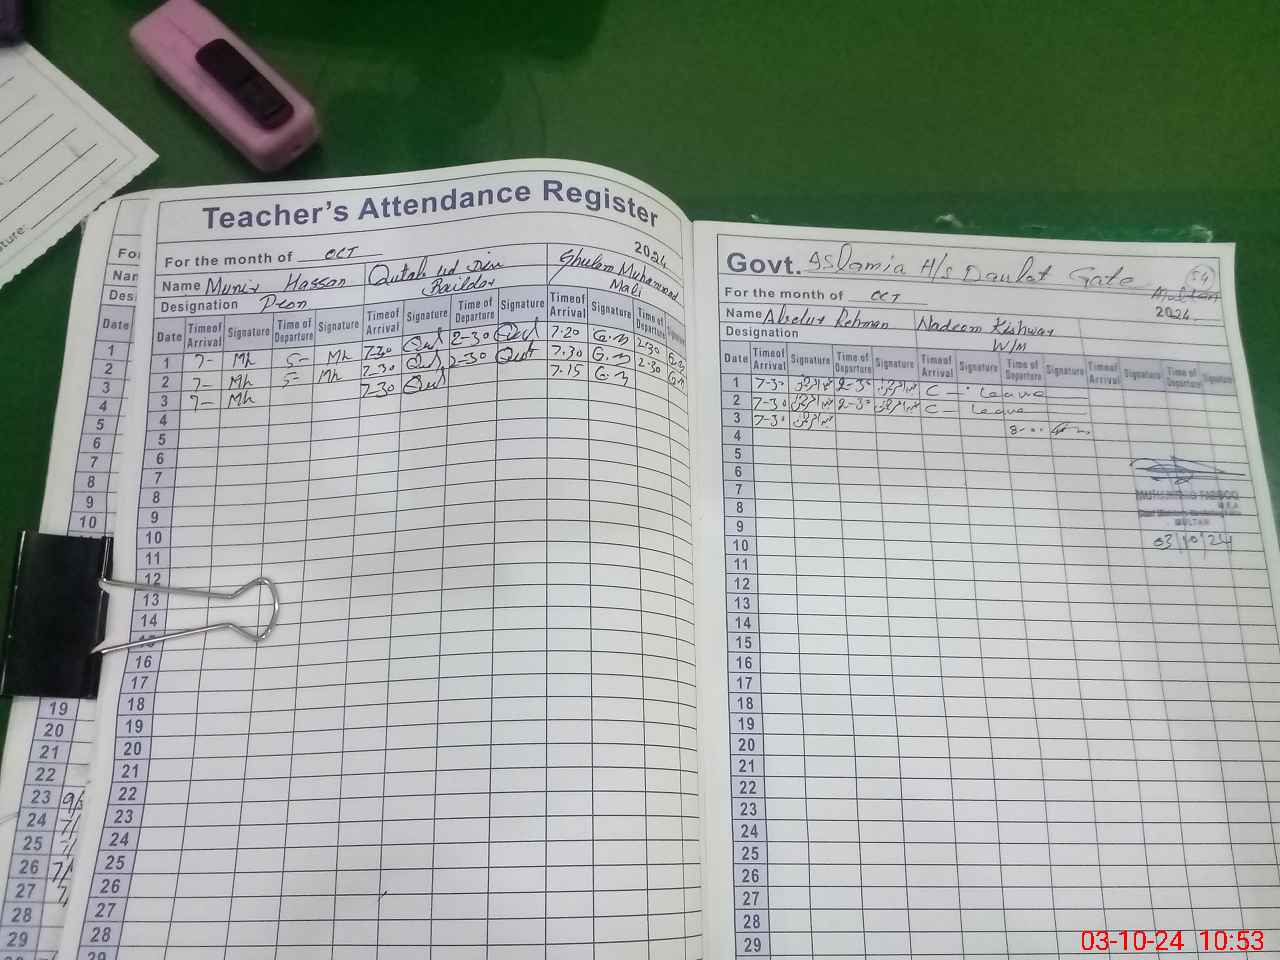 Teacher's Attendance Register
For the month of OCT 2024
Name Munir Hassan Qutab ud Din Ghulam Muhammad
Designation Peon Baildar Mali
Date Time of Arrival Signature Time of Departure Signature Time of Arrival Signature Time of Departure Signature Time of Arrival Signature Time of Departure Signature
1 7- MH 5- MH 7-30 Qut 2-30 Qut 7.20 G.M 2.30 G.M
2 7- MH 5- MH 7-30 Qut 2-30 Qut 7.30 G.M 2.30 G.M
3 7- MH 7-30 Qut 7.15 G.M
4
5
6
7
8
9
10
11
12
13
14
15
16
17
18
19
20
21
22
23
24
25
26
27
28
29
Govt. Islamia H/s Daulat Gate Multan
54
For the month of OCT 2024
Name Abdul Rehman Nadeem Kishwar
Designation W/M
Date Time of Arrival Signature Time of Departure Signature Time of Arrival Signature Time of Departure Signature Time of Arrival Signature Time of Departure Signature
1 7-30 2-30 C - leave
2 7-30 2-30 C - leave
3 7-30
4 8-00
5
6
7
8
9
10
11
12
13
14
15
16
17
18
19
20
21
22
23
24
25
26
27
28
29
MULTAN
03/10/24
Date
1
2
3
4
5
6
7
8
9
10
19
20
21
22
23
24
25
26
27
28
29
03-10-24 10:53